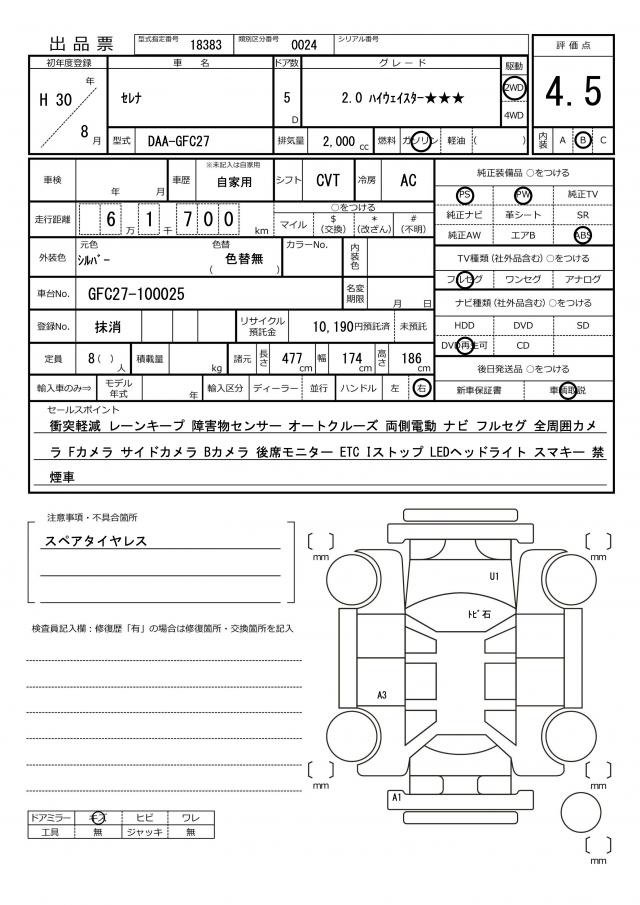 出品票 型式指定番号 18383 類別区分番号 0024 シリアル番号
初年度登録 車名 ドア数 グレード 駆動 評価点
H 30 年 8 月 セレナ 5 D 2.0 ハイウェイスター★★★ 2WD 4WD 4.5
型式 DAA-GFC27 排気量 2,000 cc 燃料 ガソリン 軽油 ( ) 内装 A B C
車検 年 月 車歴 ※未記入は自家用 自家用 シフト CVT 冷房 AC
走行距離 6 万 1 千 7 0 0 km ○をつける
マイル $(交換) *(改ざん) #(不明)
外装色 元色 シルバー 色替 色替無 ( ) カラーNo. 内装色
車台No. GFC27-100025 名変期限 月 日
登録No. 抹消 リサイクル預託金 10,190円預託済 未預託
定員 8( )人 積載量 kg 諸元 長さ 477 cm 幅 174 cm 高さ 186 cm
輸入車のみ⇒ モデル年式 年 輸入区分 ディーラー 並行 ハンドル 左 右
純正装備品 ○をつける
PS PW 純正TV
純正ナビ 革シート SR
純正AW エアB ABS
TV種類(社外品含む)○をつける
フルセグ ワンセグ アナログ
ナビ種類(社外品含む)○をつける
HDD DVD SD
DVD再生可 CD
後日発送品 ○をつける
新車保証書 車輌取説
セールスポイント
衝突軽減 レーンキープ 障害物センサー オートクルーズ 両側電動 ナビ フルセグ 全周囲カメ
ラ Fカメラ サイドカメラ Bカメラ 後席モニター ETC Iストップ LEDヘッドライト スマキー 禁
煙車
注意事項・不具合箇所
スペアタイヤレス
検査員記入欄：修復歴「有」の場合は修復箇所・交換箇所を記入
ドアミラー キズ ヒビ ワレ
工具 無 ジャッキ 無
mm
mm
U1
トビ石
A3
mm
mm
A1
mm